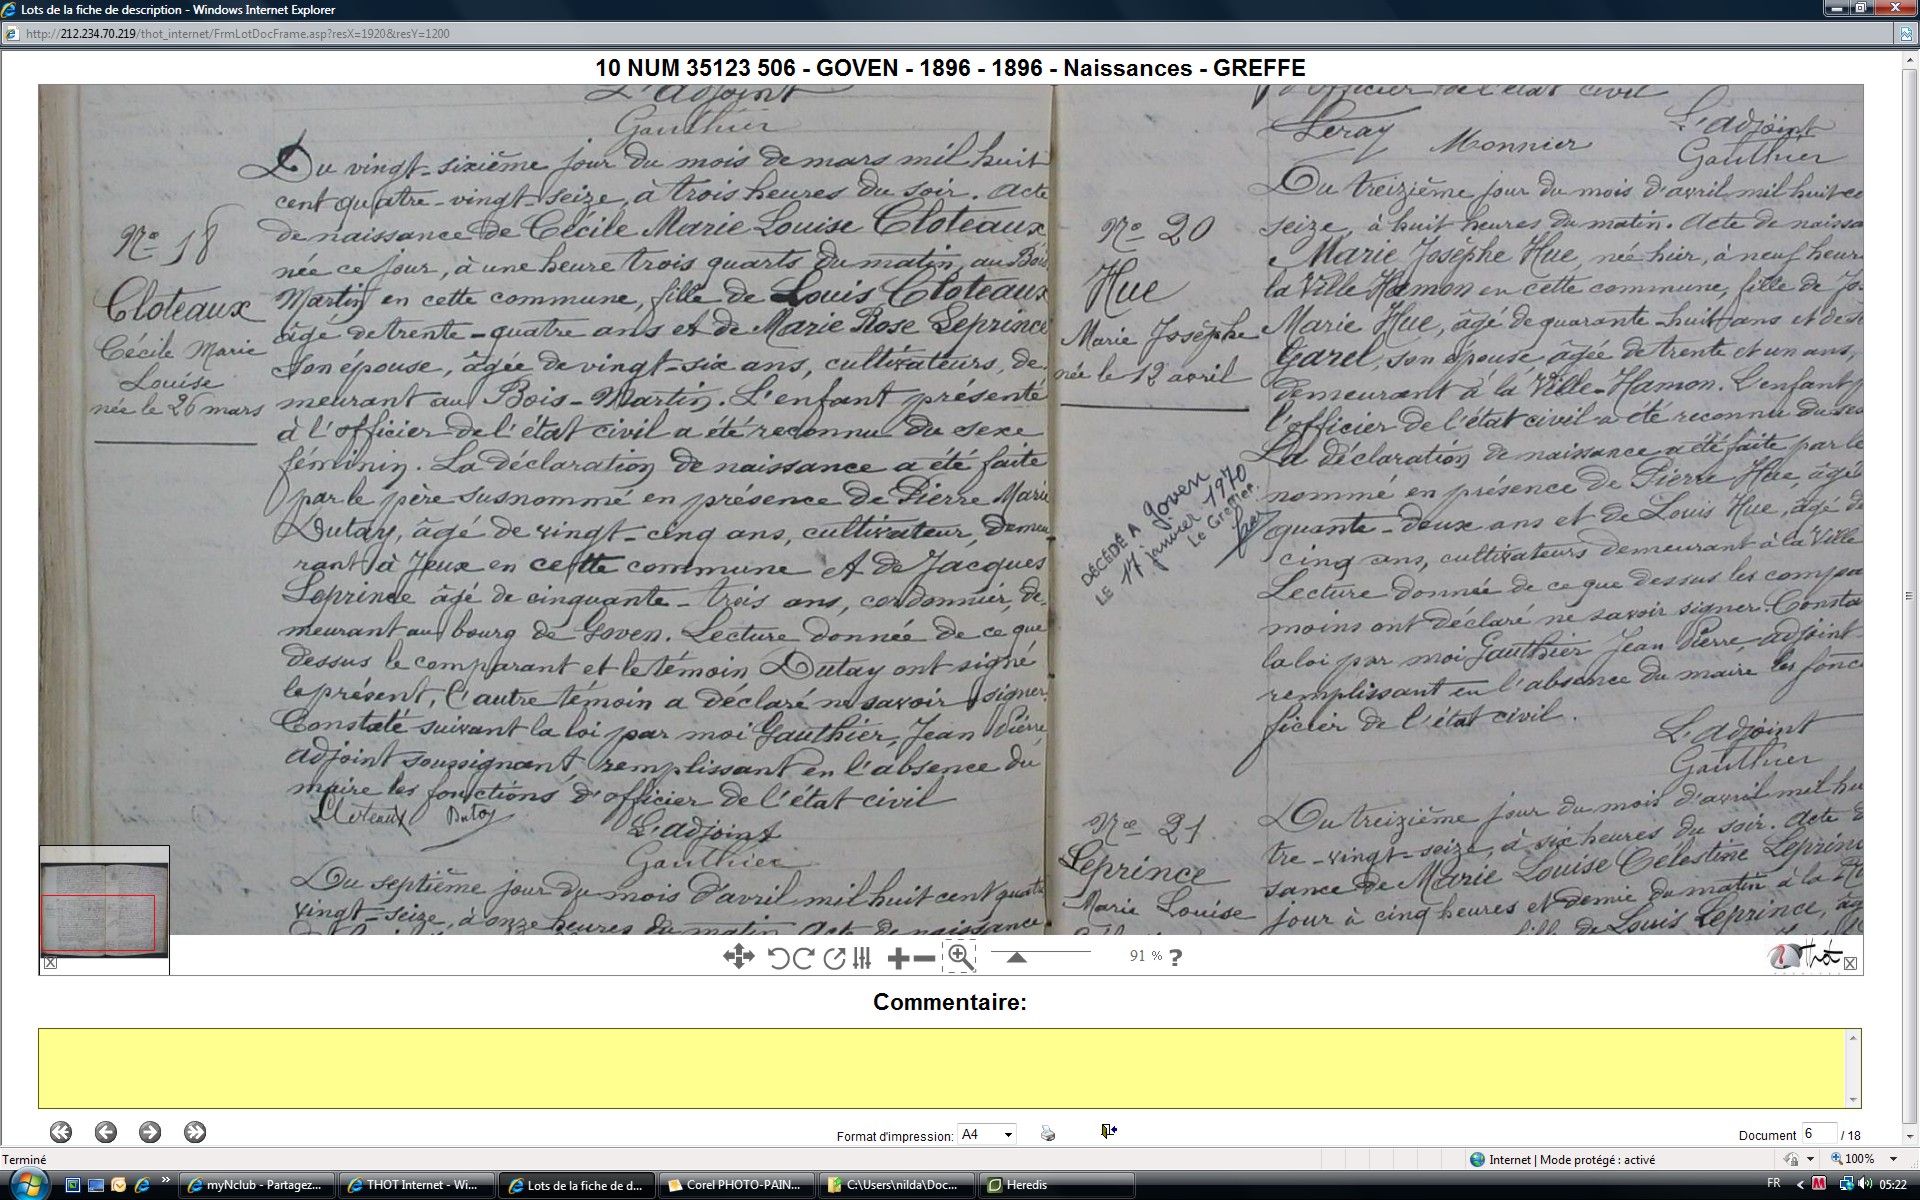 Lots de la fiche de description - Windows Internet Explorer
http://212.234.70.219/thot_internet/FrmLotDocFrame.asp?resX=1920&resY=1200
10 NUM 35123 506 - GOVEN - 1896 - 1896 - Naissances - GREFFE
L'adjoint
Gauthier
Du vingt-sixième jour du mois de mars mil huit
cent quatre-vingt-seize, à trois heures du soir. Acte
de naissance de Cécile Marie Louise Cloteaux
née ce jour, à une heure trois quarts du matin, au Bois
Martin en cette commune, fille de Louis Cloteaux
âgé de trente-quatre ans et de Marie Rose Leprince
son épouse, âgée de vingt-six ans, cultivateurs, de-
meurant au Bois-Martin. L'enfant présenté
à l'officier de l'état civil a été reconnu du sexe
féminin. La déclaration de naissance a été faite
par le père susnommé en présence de Pierre Marie
Dutay, âgé de vingt-cinq ans, cultivateur, demeu
rant à Jeux en cette commune et de Jacques
Leprince âgé de cinquante-trois ans, cordonnier, de-
meurant au bourg de Goven. Lecture donnée de ce que
dessus le comparant et le témoin Dutay ont signé
le présent, l'autre témoin a déclaré ne savoir signer.
Constaté suivant la loi par moi Gauthier, Jean Pierre,
adjoint soussignant remplissant en l'absence du
maire les fonctions d'officier de l'état civil
Cloteaux Dutay
L'adjoint
Gauthier
No 18
Cloteaux
Cécile Marie
Louise
née le 26 mars
Du septième jour du mois d'avril mil huit cent quatre
vingt-seize, à onze heures du matin. Acte de naissance
d'officier de l'état civil
Leray Monnier L'adjoint
Gauthier
No 20
Hue
Marie Josèphe
née le 12 avril
DÉCÉDÉ A Goven
LE 17 janvier 1970
Le Greffier.
Du treizième jour du mois d'avril mil huit ce
seize, à huit heures du matin. Acte de naissa
Marie Josèphe Hue, née hier, à neuf heur
la Ville Hamon en cette commune, fille de Jo
Marie Hue, âgé de quarante-huit ans et de
Garel, son épouse, âgée de trente et un ans,
demeurant à la Ville-Hamon. L'enfant p
l'officier de l'état civil a été reconnu du se
La déclaration de naissance a été faite par le
nommé en présence de Pierre Hue, âgé
quante-deux ans et de Louis Hue, âgé de
cinq ans, cultivateurs demeurant à la Ville
Lecture donnée de ce que dessus les compa
moins ont déclaré ne savoir signer. Consta
la loi par moi Gauthier Jean Pierre, adjoint
remplissant en l'absence du maire les fonc
ficier de l'état civil.
L'adjoint
Gauthier
No 21
Leprince
Marie Louise
Du treizième jour du mois d'avril mil hu
tre-vingt-seize, à six heures du soir. Acte d
sance de Marie Louise Célestine Leprin
jour à cinq heures et demie du matin à la
fille de Louis Leprince, âg
91 % ?
Thot
Commentaire:
Format d'impression: A4
Document 6 / 18
Terminé
Internet | Mode protégé : activé
100%
myNclub - Partagez...
THOT Internet - Wi...
Lots de la fiche de d...
Corel PHOTO-PAIN...
C:\Users\nilda\Doc...
Heredis
FR
05:22